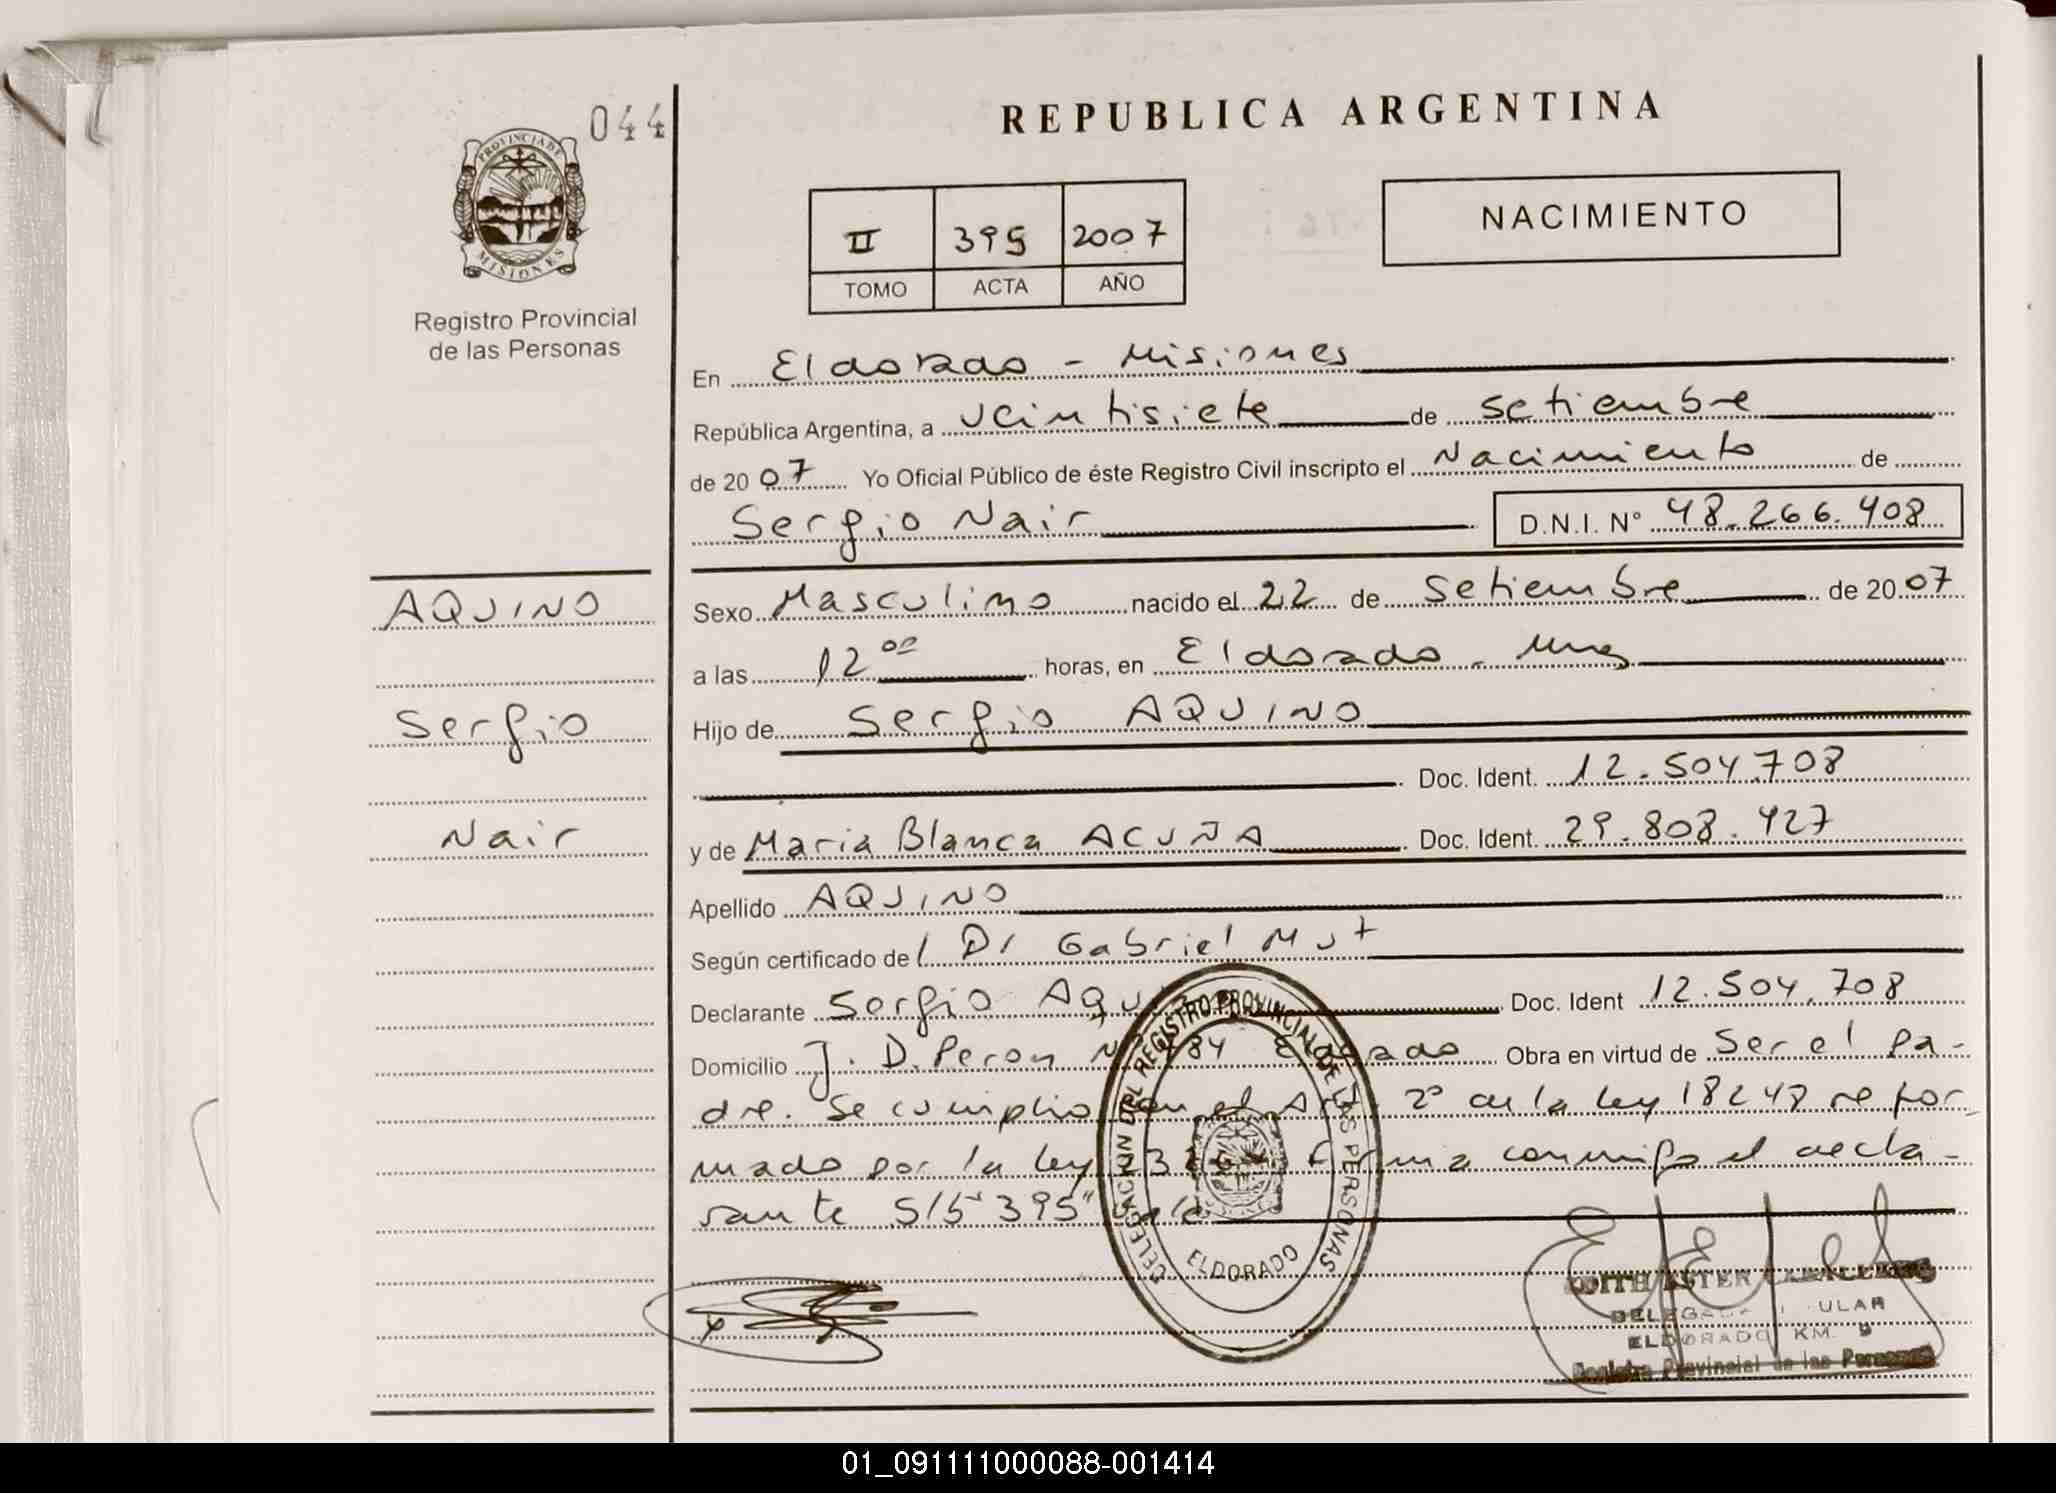 044
PROVINCIA DE
MISIONES
Registro Provincial
de las Personas
REPUBLICA ARGENTINA
II 395 2007
TOMO ACTA AÑO
NACIMIENTO
En Eldorado - Misiones
República Argentina, a veintisiete de setiembre
de 2007 Yo Oficial Público de éste Registro Civil inscripto el Nacimiento de
Sergio Nair D.N.I. N° 48.266.408
AQUINO
Sergio
Nair
Sexo Masculino nacido el 22 de Setiembre de 2007
a las 12 00 horas, en Eldorado - Mnes
Hijo de Sergio AQUINO
Doc. Ident. 12.504.708
y de Maria Blanca ACUÑA Doc. Ident. 29.808.427
Apellido AQUINO
Según certificado de l Dr Gabriel Mut
Declarante Sergio Aquino Doc. Ident 12.504.708
Domicilio J. D. Peron Eldorado Obra en virtud de Ser el pa-
dre. Se cumplio con el Art. 2° de la ley 18248 refor-
mado por la ley Firma conmigo el decla-
rante S/5 "395"
DELEGACION DEL REGISTRO PROVINCIAL DE LAS PERSONAS
ELDORADO
EDITH ESTER
DELEGADA TITULAR
ELDORADO KM. 9
Registro Provincial de las Personas
01_091111000088-001414